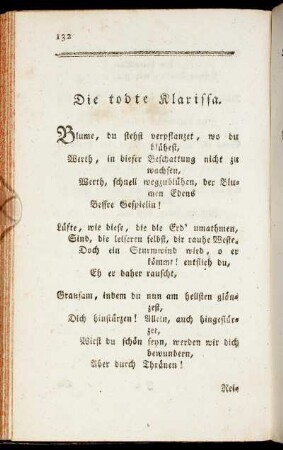 132
Die todte Klarissa.
Blume, du stehst verpflanzet, wo du
blühest,
Werth, in dieser Beschattung nicht zu
wachsen,
Werth, schnell wegzublühen, der Blu-
men Edens
Bessre Gespielin!
Lüfte, wie diese, die die Erd' umathmen,
Sind, die leiseren selbst, dir rauhe Weste.
Doch ein Sturmwind wird, o er
kömmt! entflieh du,
Eh er daher rauscht,
Grausam, indem du nun am hellsten glän-
zest,
Dich hinstürzen! Allein, auch hingestür-
zet,
Wirst du schön seyn, werden wir dich
bewundern,
Aber durch Thränen!
Reiz